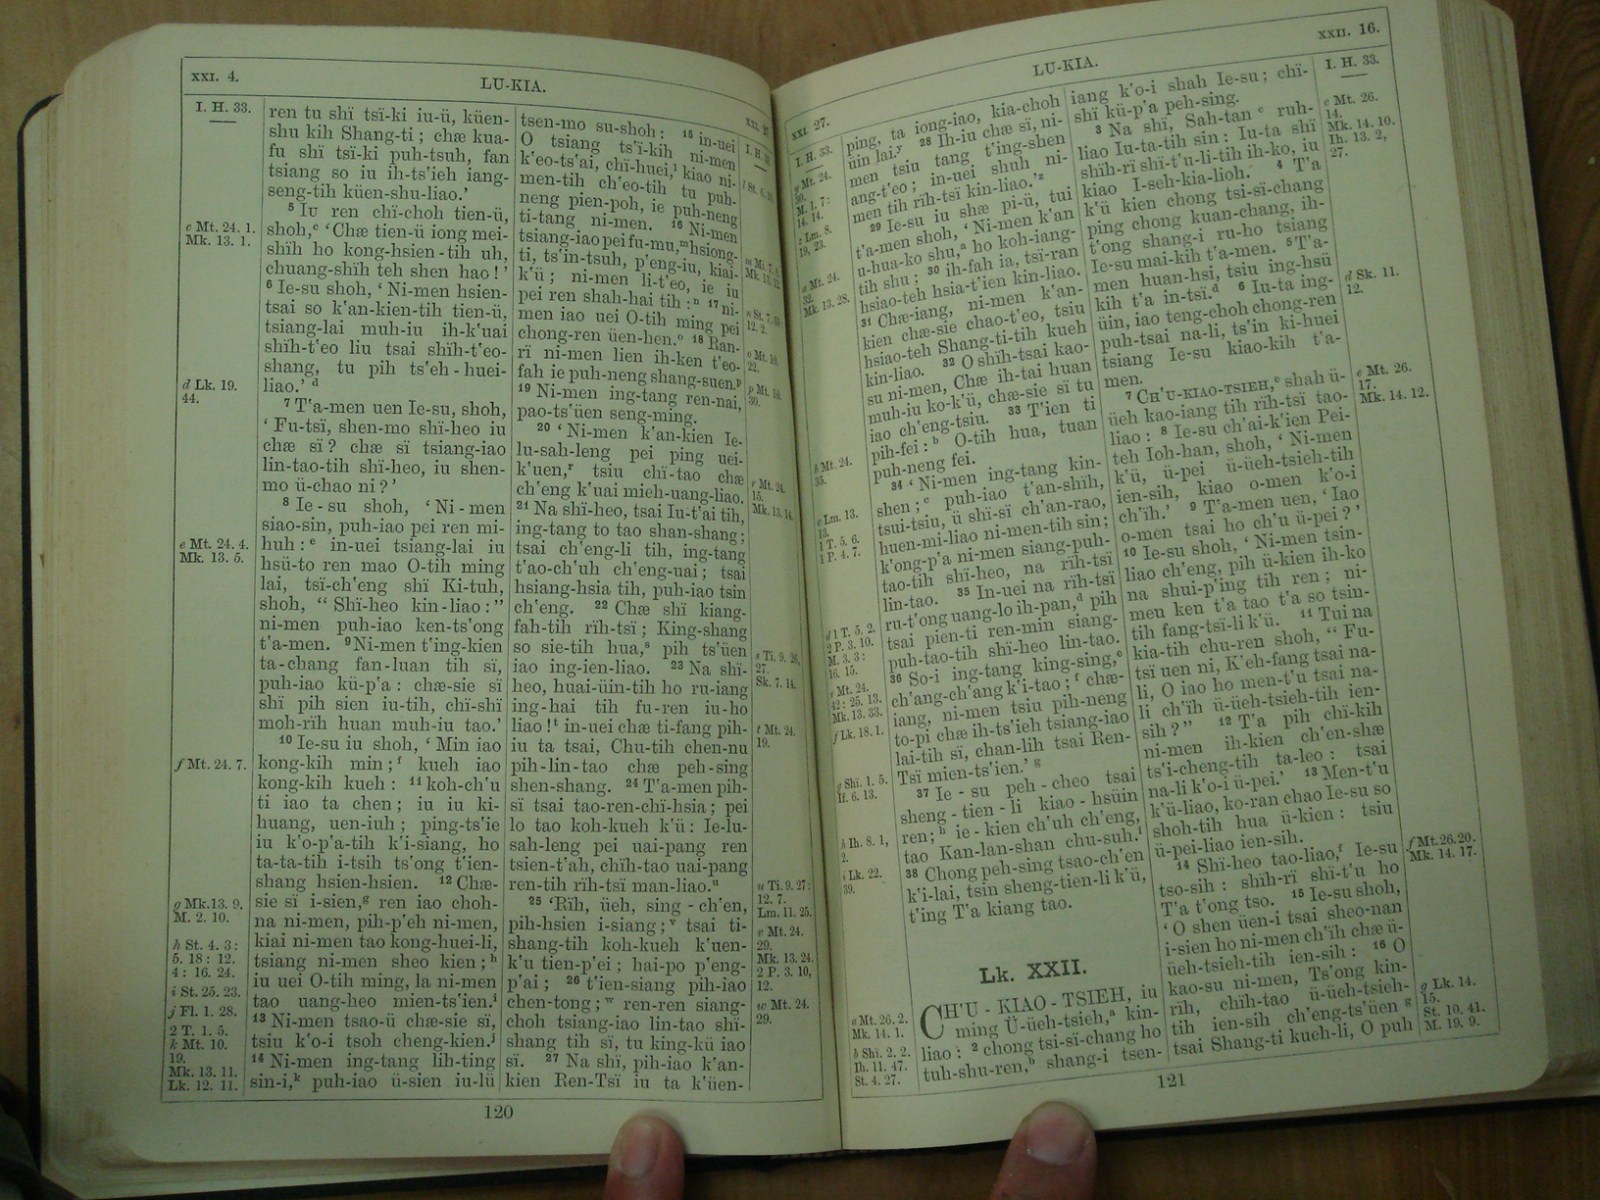 XXI. 4.
LU-KIA.
I. H. 33.
c Mt. 24. 1.
Mk. 13. 1.
d Lk. 19.
44.
e Mt. 24. 4.
Mk. 13. 5.
f Mt. 24. 7.
g Mk. 13. 9.
M. 2. 10.
h St. 4. 3:
5. 18: 12.
4: 16. 24.
i St. 25. 23.
j Fl. 1. 28.
2 T. 1. 5.
k Mt. 10.
19.
Mk. 13. 11.
Lk. 12. 11.
ren tu shï tsï-ki iu-ü, küen-
shu kih Shang-ti; chæ kua-
fu shï tsï-ki puh-tsuh, fan
tsiang so iu ih-ts'ieh iang-
seng-tih küen-shu-liao.'
5 Iu ren chï-choh tien-ü,
shoh,c 'Chæ tien-ü iong mei-
shïh ho kong-hsien-tih uh,
chuang-shïh teh shen hao!'
6 Ie-su shoh, 'Ni-men hsien-
tsai so k'an-kien-tih tien-ü,
tsiang-lai muh-iu ih-k'uai
shïh-t'eo liu tsai shïh-t'eo-
shang, tu pih ts'eh-huei-
liao.' d
7 T'a-men uen Ie-su, shoh,
'Fu-tsï, shen-mo shï-heo iu
chæ sï? chæ sï tsiang-iao
lin-tao-tih shï-heo, iu shen-
mo ü-chao ni?'
8 Ie-su shoh, 'Ni-men
siao-sin, puh-iao pei ren mi-
huh:e in-uei tsiang-lai iu
hsü-to ren mao O-tih ming
lai, tsï-ch'eng shï Ki-tuh,
shoh, "Shï-heo kin-liao:"
ni-men puh-iao ken-ts'ong
t'a-men. 9 Ni-men t'ing-kien
ta-chang fan-luan tih sï,
puh-iao kü-p'a: chæ-sie sï
shï pih sien iu-tih, chï-shï
moh-rïh huan muh-iu tao.'
10 Ie-su iu shoh, 'Min iao
kong-kih min;f kueh iao
kong-kih kueh: 11 koh-ch'u
ti iao ta chen; iu iu ki-
huang, uen-iuh; ping-ts'ie
iu k'o-p'a-tih k'i-siang, ho
ta-ta-tih i-tsih ts'ong t'ien-
shang hsien-hsien. 12 Chæ-
sie sï i-sien,g ren iao choh-
na ni-men, pih-p'eh ni-men,
kiai ni-men tao kong-huei-li,
tsiang ni-men sheo kien;h
iu uei O-tih ming, la ni-men
tao uang-heo mien-ts'ien.i
13 Ni-men tsao-ü chæ-sie sï,
tsiu k'o-i tsoh cheng-kien.j
14 Ni-men ing-tang lih-ting
sin-i,k puh-iao ü-sien iu-lü
tsen-mo su-shoh: 15 in-uei
O tsiang ts'ï-kih ni-men
k'eo-ts'ai, chï-huei,l kiao ni-
men-tih ch'eo-tih tu puh-
neng pien-poh, ie puh-neng
ti-tang ni-men. 16 Ni-men
tsiang-iao pei fu-mu,m hsiong-
ti, ts'in-tsuh, p'eng-iu, kiai-
k'ü; ni-men li-t'eo, ie iu
pei ren shah-hai tih:n 17 ni-
men iao uei O-tih ming pei
chong-ren üen-hen.o 18 Ran-
rï ni-men lien ih-ken t'eo-
fah ie puh-neng shang-suen.p
19 Ni-men ing-tang ren-nai,
pao-ts'üen seng-ming.
20 'Ni-men k'an-kien Ie-
lu-sah-leng pei ping uei-
k'uen,r tsiu chï-tao chæ
ch'eng k'uai mieh-uang-liao.
21 Na shï-heo, tsai Iu-t'ai tih,
ing-tang to tao shan-shang;
tsai ch'eng-li tih, ing-tang
t'ao-ch'uh ch'eng-uai; tsai
hsiang-hsia tih, puh-iao tsin
ch'eng. 22 Chæ shï kiang-
fah-tih rïh-tsï; King-shang
so sie-tih hua,s pih ts'üen
iao ing-ien-liao. 23 Na shï-
heo, huai-üin-tih ho ru-iang
ing-hai tih fu-ren iu-ho
liao!t in-uei chæ ti-fang pih-
iu ta tsai, Chu-tih chen-nu
pih-lin-tao chæ peh-sing
shen-shang. 24 T'a-men pih-
sï tsai tao-ren-chï-hsia; pei
lo tao koh-kueh k'ü: Ie-lu-
sah-leng pei uai-pang ren
tsien-t'ah, chïh-tao uai-pang
ren-tih rïh-tsï man-liao.u
25 'Rïh, üeh, sing-ch'en,
pih-hsien i-siang;v tsai ti-
shang-tih koh-kueh k'uen-
k'u tien-p'ei; hai-po p'eng-
p'ai; 26 t'ien-siang pih-iao
chen-tong;w ren-ren siang-
choh tsiang-iao lin-tao shï-
shang tih sï, tu king-kü iao
sï. 27 Na shï, pih-iao k'an-
kien Ren-Tsï iu ta k'üen-
r Mt. 24.
15.
Mk. 13. 14.
s Ti. 9. 26,
27.
Sk. 7. 14.
t Mt. 24.
19.
u Ti. 9. 27:
12. 7.
Lm. 11. 25.
v Mt. 24.
29.
Mk. 13. 24.
2 P. 3. 10,
12.
w Mt. 24.
29.
120
XXI. 27.
LU-KIA.
XXII. 16.
I. H. 33.
y Mt. 24.
30.
M. 1. 7:
14. 14.
z Lm. 8.
19, 23.
a Mt. 24.
32.
Mk. 13. 28.
b Mt. 24.
35.
c Lm. 13.
13.
1 T. 5. 6.
1 P. 4. 7.
d 1 T. 5. 2.
2 P. 3. 10.
M. 3. 3:
16. 15.
e Mt. 24.
42: 25. 13.
Mk. 13. 33.
f Lk. 18. 1.
g Shï. 1. 5.
If. 6. 13.
h Ih. 8. 1,
2.
i Lk. 22.
39.
a Mt. 26. 2.
Mk. 14. 1.
b Shï. 2. 2.
Ih. 11. 47.
St. 4. 27.
ping, ta iong-iao, kia-choh
üin lai.y 28 Ih-iu chæ sï, ni-
men tsiu tang t'ing-shen
ang-t'eo; in-uei shuh ni-
men tih rïh-tsï kin-liao.'z
29 Ie-su iu shæ pi-ü, tui
t'a-men shoh, 'Ni-men k'an
u-hua-ko shu,a ho koh-iang-
tih shu; 30 ih-fah ia, tsï-ran
hsiao-teh hsia-t'ien kin-liao.
31 Chæ-iang, ni-men k'an-
kien chæ-sie chao-t'eo, tsiu
hsiao-teh Shang-ti-tih kueh
kin-liao. 32 O shïh-tsai kao-
su ni-men, Chæ ih-tai huan
muh-iu ko-k'ü, chæ-sie sï tu
iao ch'eng-tsiu. 33 T'ien ti
pih-fei:b O-tih hua, tuan
puh-neng fei.
34 'Ni-men ing-tang kin-
shen;c puh-iao t'an-shïh,
tsui-tsiu, ü shï-sï ch'an-rao,
huen-mi-liao ni-men-tih sin;
k'ong-p'a ni-men siang-puh-
tao-tih shï-heo, na rïh-tsï
lin-tao. 35 In-uei na rïh-tsï
ru-t'ong uang-lo ih-pan,d pih
tsai pien-ti ren-min siang-
puh-tao-tih shï-heo lin-tao.
36 So-i ing-tang king-sing,e
ch'ang-ch'ang k'i-tao;f chæ-
iang, ni-men tsiu pih-neng
to-pi chæ ih-ts'ieh tsiang-iao
lai-tih sï, chan-lih tsai Ren-
Tsï mien-ts'ien.' g
37 Ie-su peh-cheo tsai
sheng-tien-li kiao-hsüin
ren;h ie-kien ch'uh ch'eng,
tao Kan-lan-shan chu-suh.i
38 Chong peh-sing tsao-ch'en
k'i-lai, tsin sheng-tien-li k'ü,
t'ing T'a kiang tao.
Lk. XXII.
CH'U-KIAO-TSIEH, iu
ming Ü-üeh-tsieh,a kin-
liao: 2 chong tsi-sï-chang ho
tuh-shu-ren,b shang-i tsen-
iang k'o-i shah Ie-su; chï-
shï kü-p'a peh-sing.
3 Na shï, Sah-tan c ruh-
liao Iu-ta-tih sin: Iu-ta shï
shïh-rï shï-t'u-li-tih ih-ko, iu
kiao I-seh-kia-lioh. 4 T'a
k'ü kien chong tsi-sï-chang
ping chong kuan-chang, ih-
t'ong shang-i ru-ho tsiang
Ie-su mai-kih t'a-men. 5 T'a-
men huan-hsi, tsiu ing-hsü
kih t'a in-tsï.d 6 Iu-ta ing-
üin, iao teng-choh chong-ren
puh-tsai na-li, ts'in ki-huei
tsiang Ie-su kiao-kih t'a-
men.
7 CH'U-KIAO-TSIEH,e shah ü-
üeh kao-iang tih rïh-tsï tao-
liao: 8 Ie-su ch'ai-k'ien Pei-
teh Ioh-han, shoh, 'Ni-men
k'ü, ü-pei ü-üeh-tsieh-tih
ien-sih, kiao o-men k'o-i
ch'ïh.' 9 T'a-men uen, 'Iao
o-men tsai ho ch'u ü-pei?'
10 Ie-su shoh, 'Ni-men tsin-
liao ch'eng, pih ü-kien ih-ko
na shui-p'ing tih ren; ni-
men ken t'a tao t'a so tsin-
tih fang-tsï-li k'ü. 11 Tui na
kia-tih chu-ren shoh, "Fu-
tsï uen ni, K'eh-fang tsai na-
li, O iao ho men-t'u tsai na-
li ch'ïh ü-üeh-tsieh-tih ien-
sih?" 12 T'a pih chï-kih
ni-men ih-kien ch'en-shæ
ts'i-cheng-tih ta-leo: tsai
na-li k'o-i ü-pei.' 13 Men-t'u
k'ü-liao, ko-ran chao Ie-su so
shoh-tih hua ü-kien: tsiu
ü-pei-liao ien-sih.
14 Shï-heo tao-liao,f Ie-su
tso-sih: shïh-rï shï-t'u ho
T'a t'ong tso. 15 Ie-su shoh,
'O shen üen-i tsai sheo-nan
i-sien ho ni-men ch'ïh chæ ü-
üeh-tsieh-tih ien-sih: 16 O
kao-su ni-men, Ts'ong kin-
rïh, chïh-tao ü-üeh-tsieh-
tih ien-sih ch'eng-ts'üen g
tsai Shang-ti kueh-li, O puh
I. H. 33.
c Mt. 26.
14.
Mk. 14. 10.
Ih. 13. 2,
27.
d Sk. 11.
12.
e Mt. 26.
17.
Mk. 14. 12.
f Mt. 26. 20.
Mk. 14. 17.
g Lk. 14.
15.
St. 10. 41.
M. 19. 9.
121